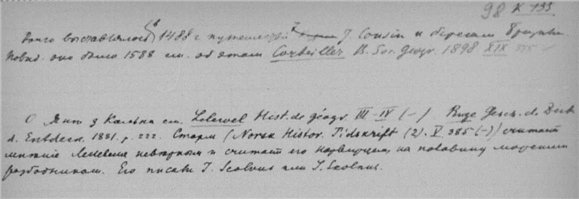 98 К 193
Долго выставлялось 1488 г. путешествие J. Cousin к берегам Бразилии
Повид. оно было 1588 см. об этом Corbeiller B. Soc. Geogr. 1898 XIX
О Яне з Кольна см. Lelewel Hist. de géogr. III-IV (-) Ruge Gesch. d.
d. Entdeck. 1881. p. 222. Сторм (Norsk Histor. Tidskrift (2). V 385 (-)) считает
мнение Лелевеля неверным и считает его норвежцем на половину морским
разбойником. Его писали J. Scolvus или J. Scolnus.